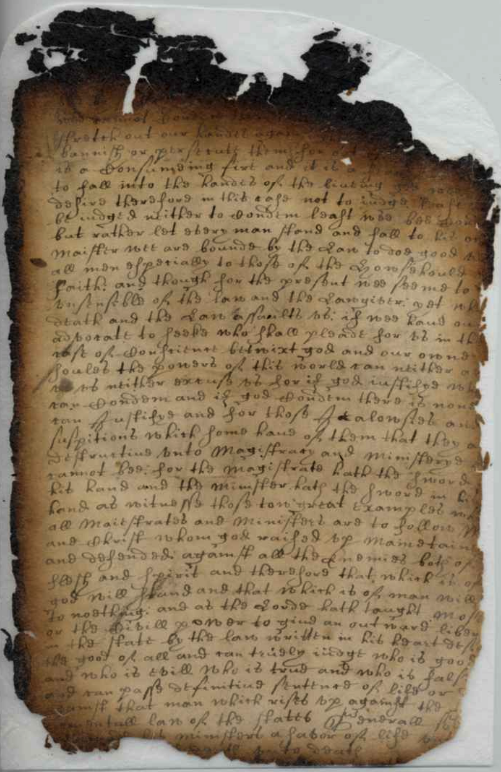 wee cannot
stretch out our handes against
bannish or persecute them for out
is a Consuminge fire and it is a
to fall into the handes of the liveing god wee
desire therefore in this case not to iudge least
be iudged neither to Condem least wee bee
but rather let every man stand and fall to his
Maister wee are bounde by the Law to doe good
all men especially to those of the Housholde
faith; and though for the present wee seeme to
unsensible of the law and the Lawgiver: yet
death and the Law assault us: if wee have
advocate to seeke who shall pleade for us in
case of Conscience betwixt god and our owne
soules the powers of this world can neither
us neither excuse us for if god iustifye
can Condem and if god Condem there is none
can Justifye and for those Jealowsies
suspitions which some have of them that they
destructive unto Magistracy and Ministery
cannot bee: for the magistrate hath the sword
his hand and the Minister hath the sword in
hand as witnesse those tow great examples
all Maiestrates and Ministers are to follow
and Christ whom god raised up Maintained
and defended against all the Enemies both of
flesh and spirit and therefore that, which is of
god will stand and that which is of man will
to noething: and as the Lorde hath taught
or the Civill power to give an outward liberty
in the state by the law written in his heart
the good of all and can truely iudge who is good
and who is evill who is true and who is false
and can pass definitive sentence of life or
against that man which rises up against the
law of the states Generall
his ministers a savor of life
unto death